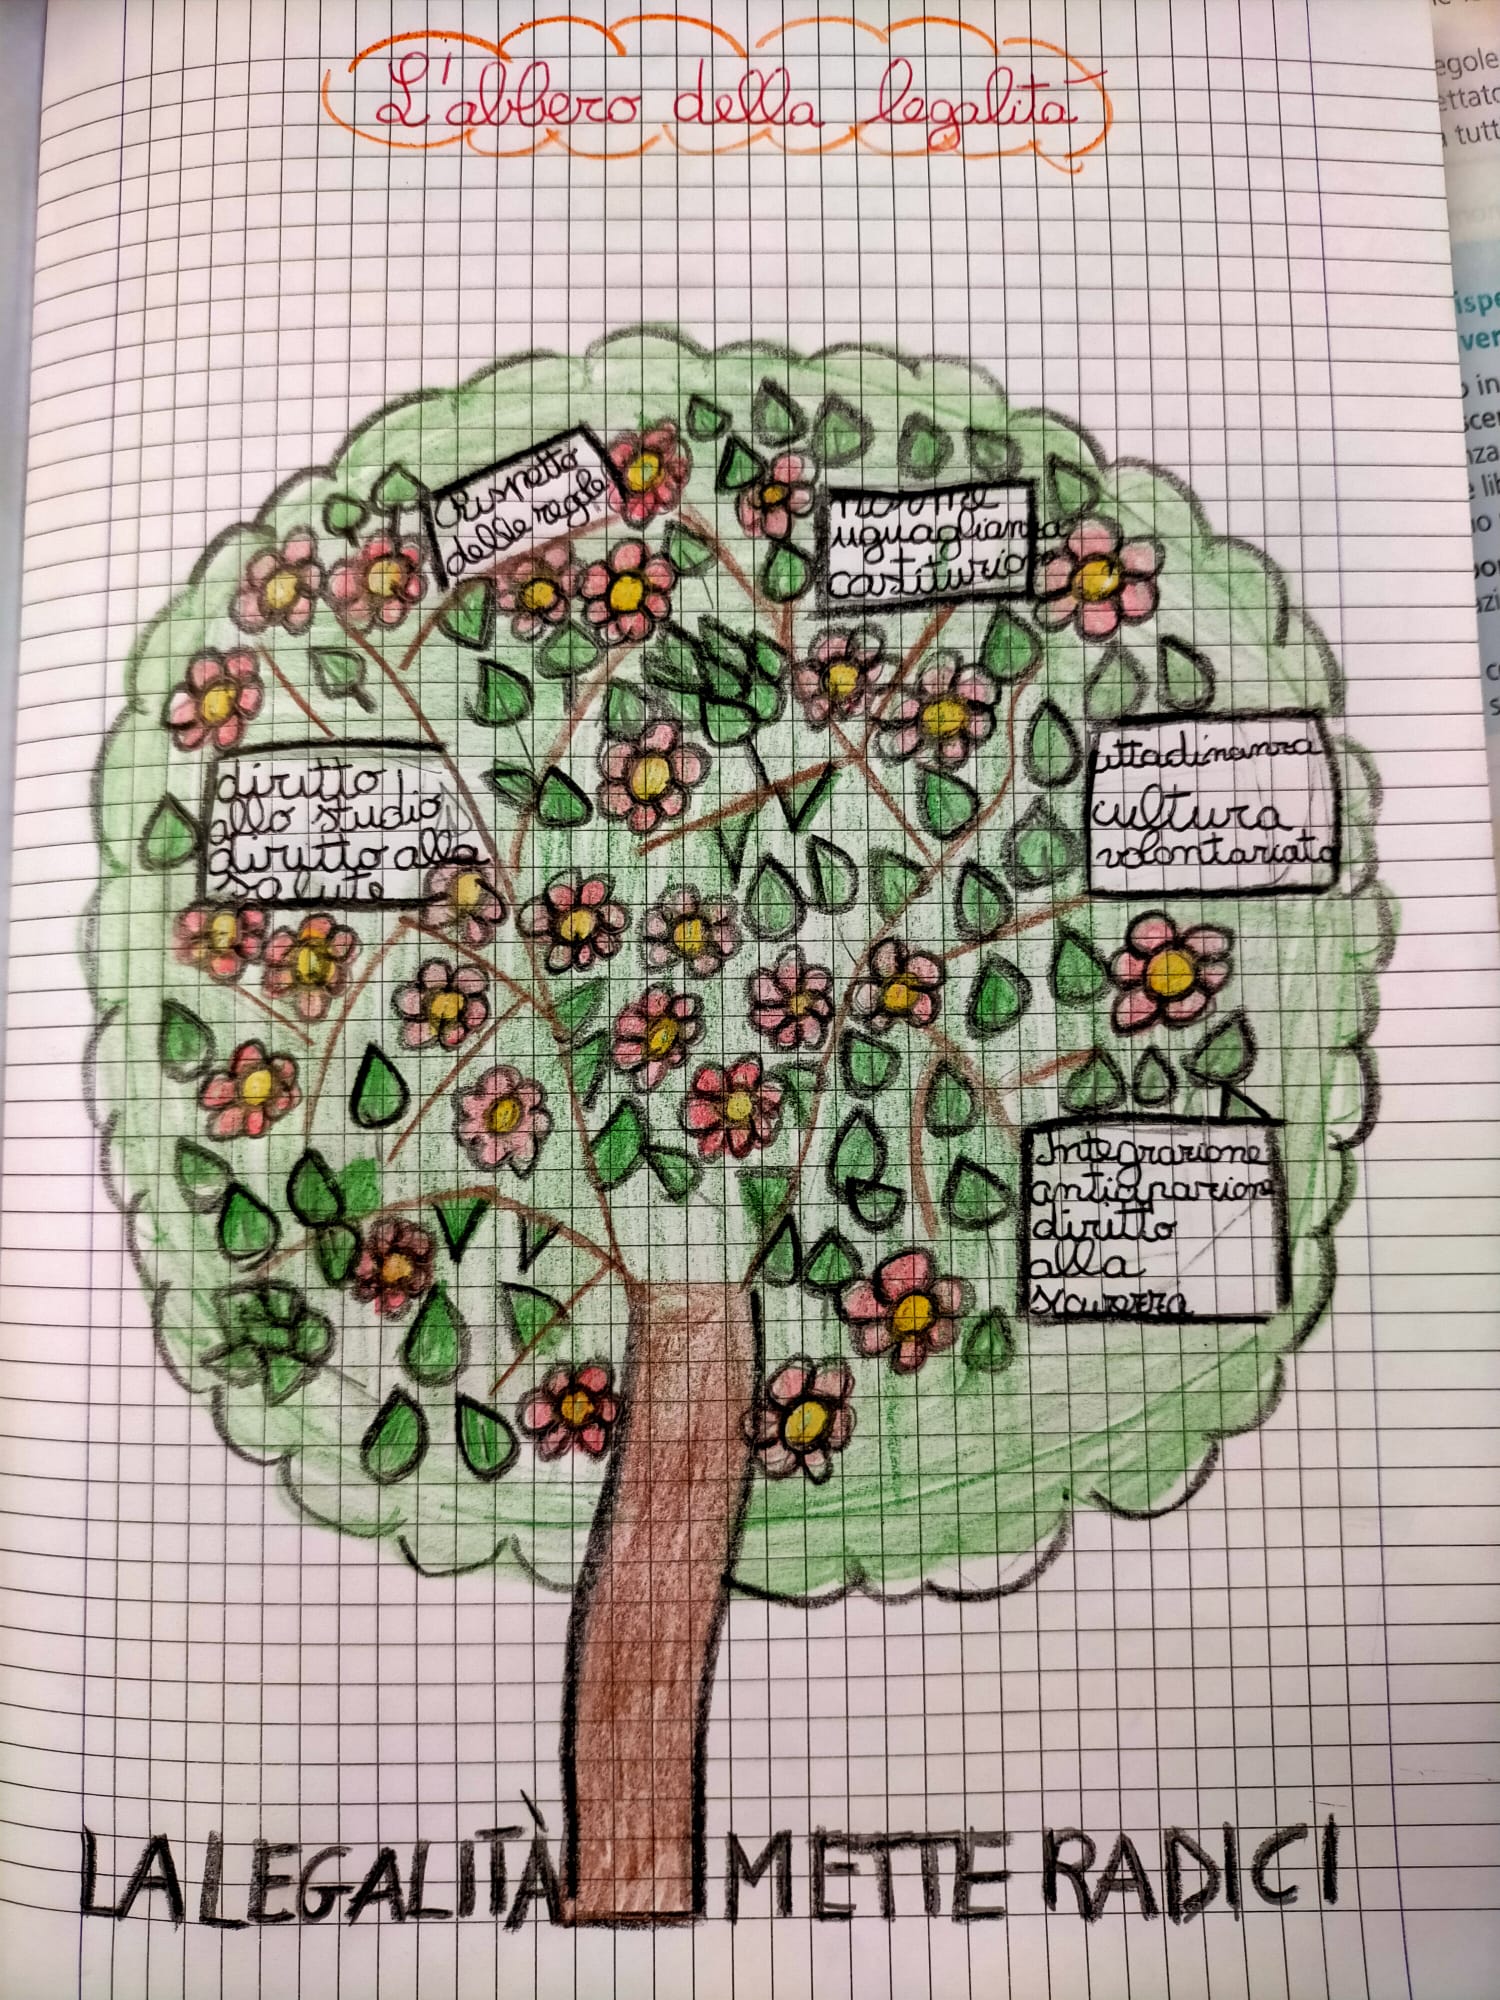 L'albero della legalità
Rispetto
delle regole
norme
uguaglianza
costituzio
diritto
allo studio
diritto alla
salute
cittadinanza
cultura
volontariato
Integrazione
anticipazione
diritto
alla
sicurezza
LA LEGALITÀ METTE RADICI
egole
ettato
tutt
ispe
ver